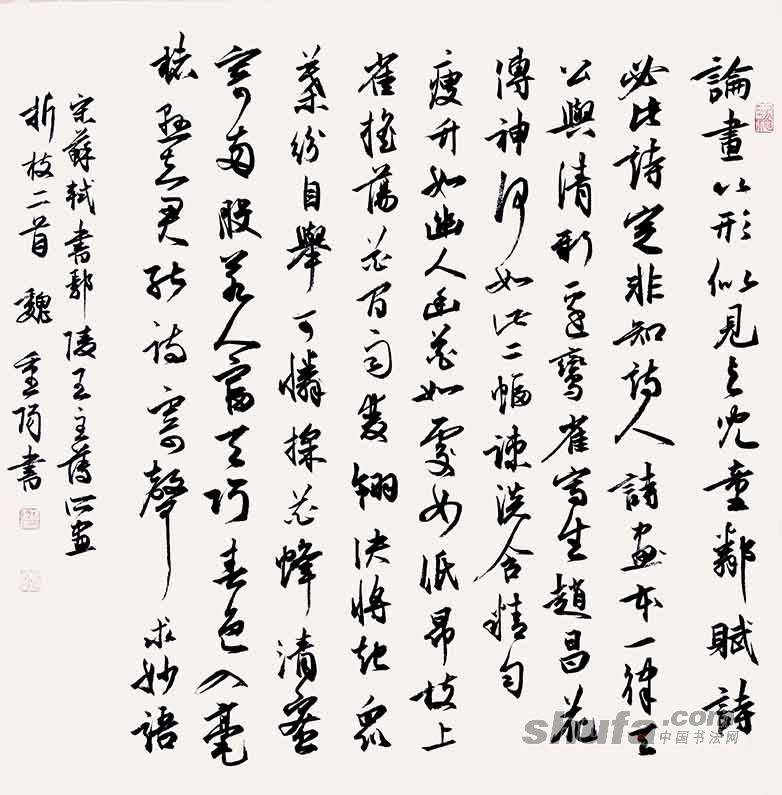 論畫以形似見與兒童鄰賦詩
必此詩定非知詩人詩畫本一律天
公與清新邊鸞雀寫生趙昌花
傳神何如此二幅疎淡含精匀
瘦竹如幽人幽花如處女低昂枝上
雀摇蕩花間雨雙翎決將起眾
葉紛自舉可憐採花蜂清蜜
寄兩股若人富天巧春色入毫
楮懸知君能詩寄聲求妙語
宋蘇軾書鄢陵王主薄所畫
折枝二首 魏重書
shufa.com
中国书法网